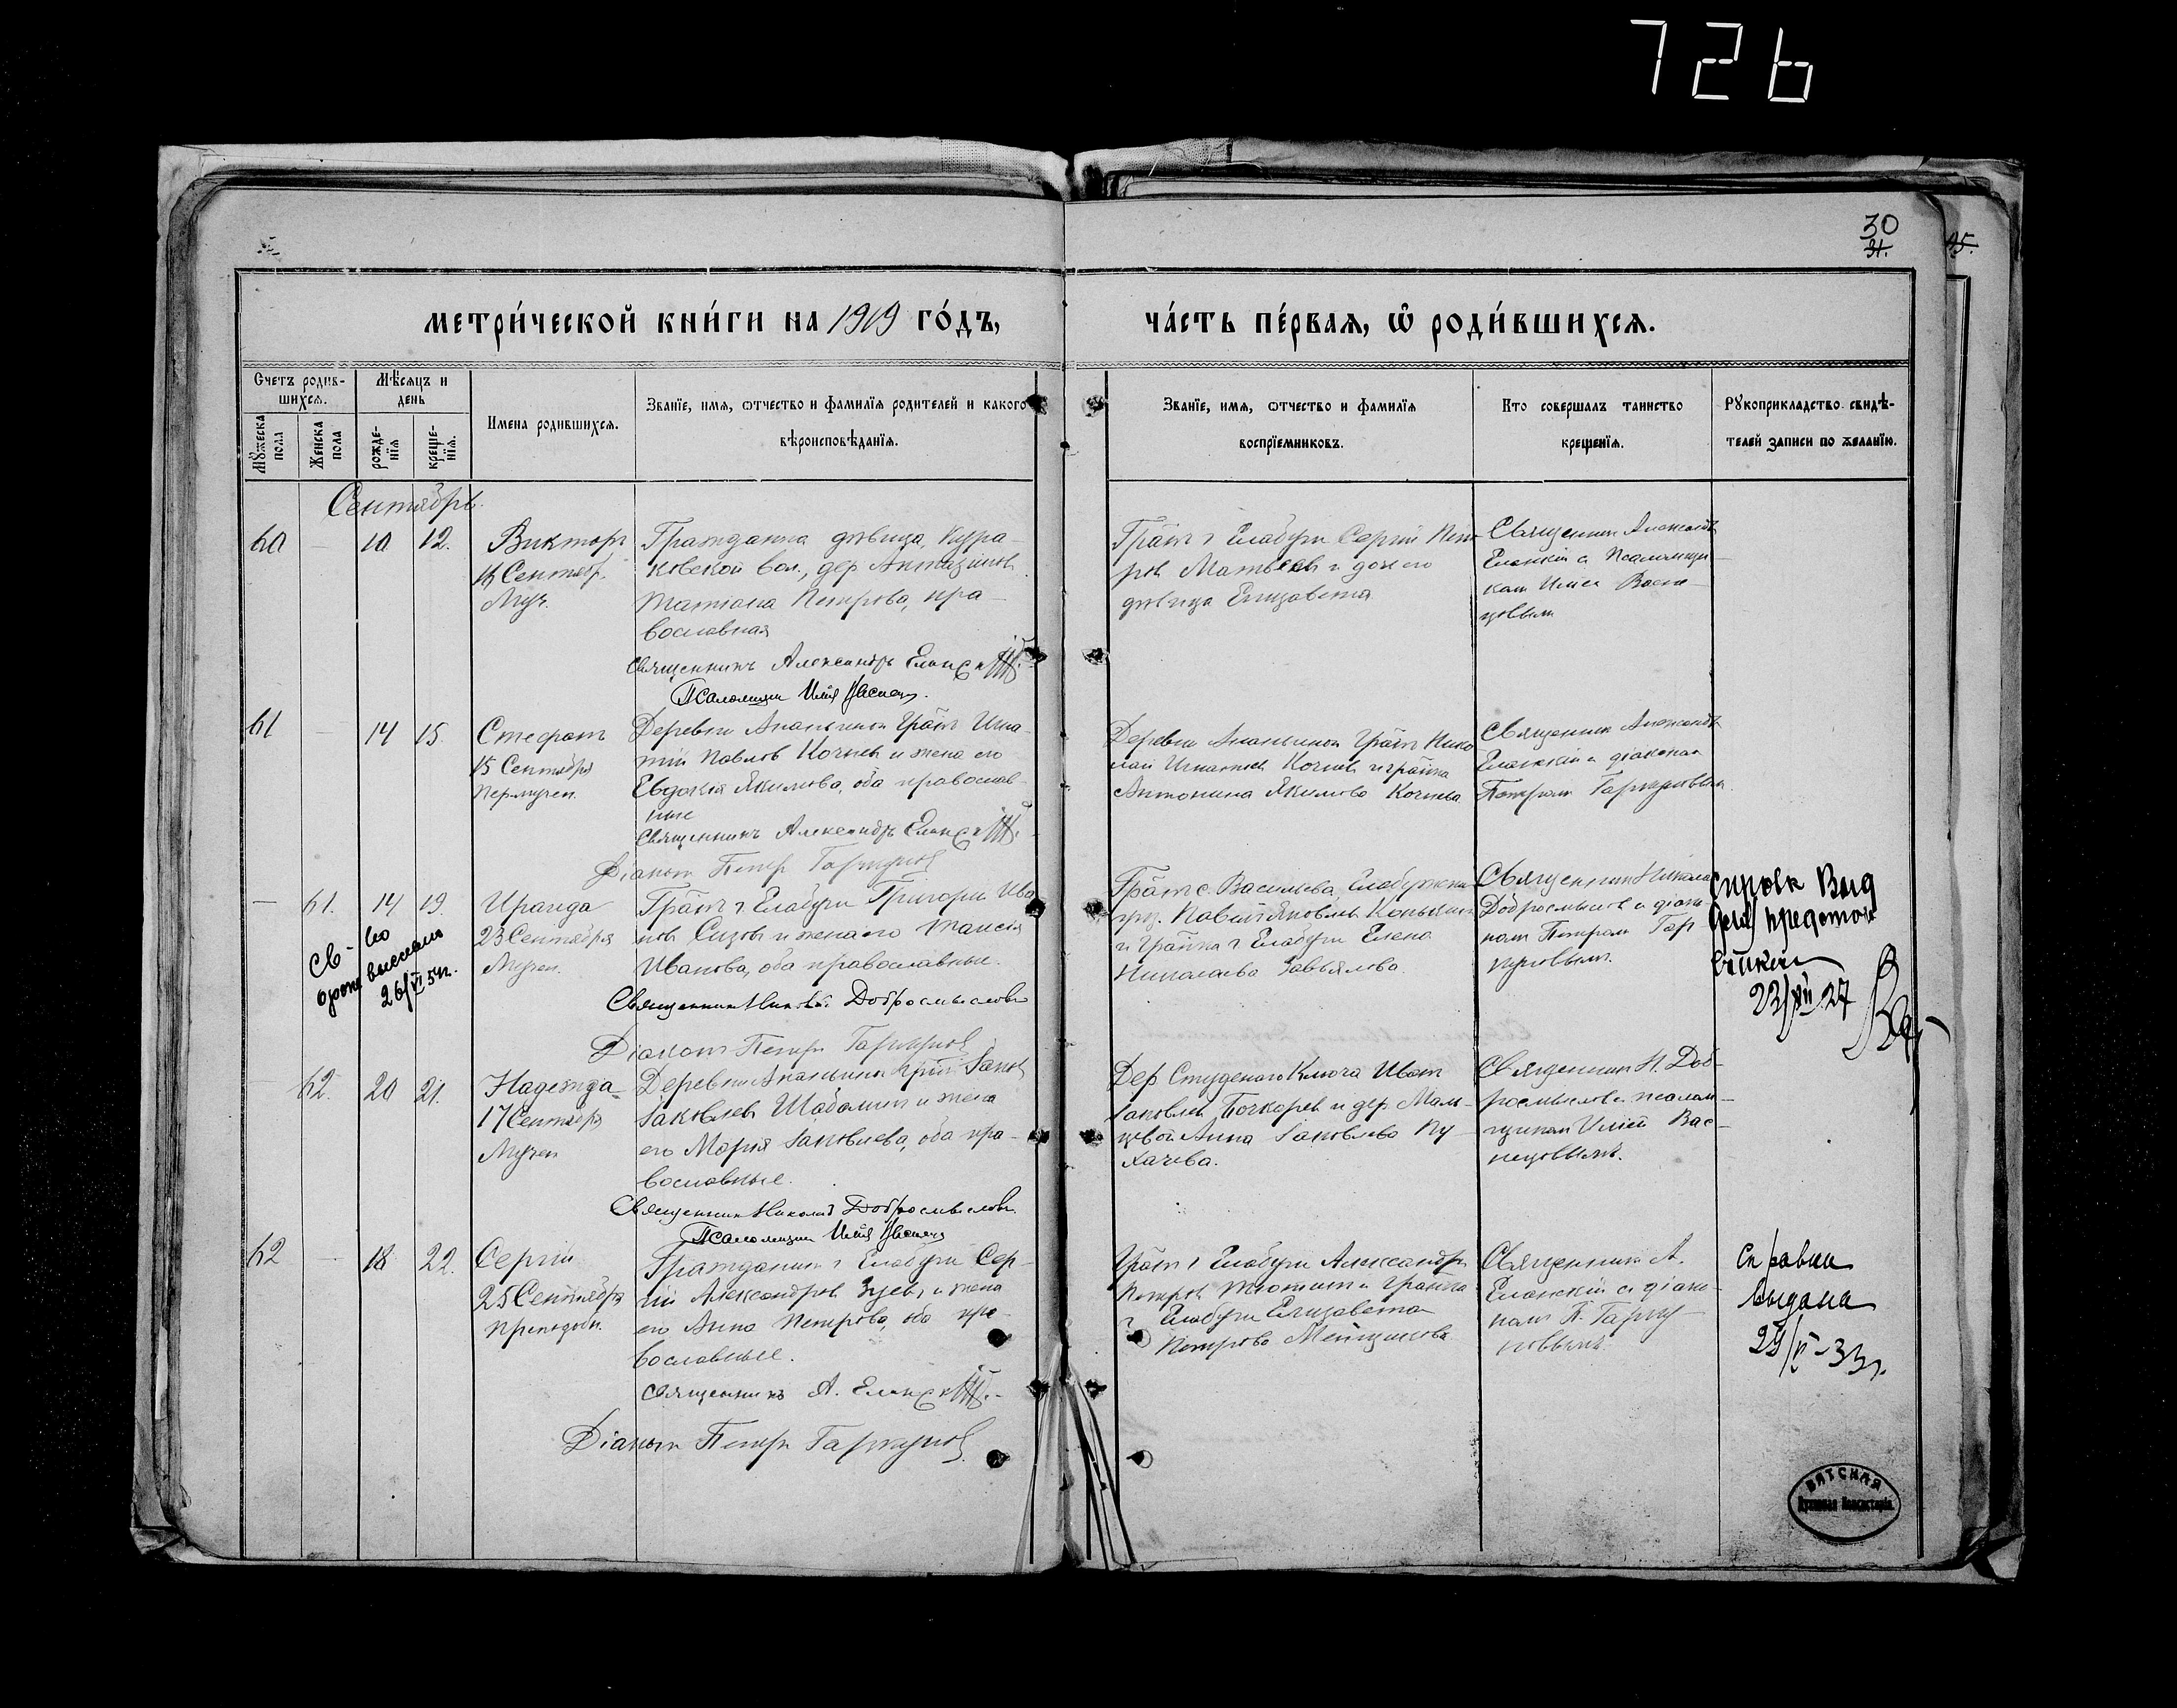 726
30
31.
45.
метри́ческой кни́ги на 1919 го́дъ,
ча́сть пе́рвая, ѡ҆ роди́вшихся.
Счетъ родив-
шихся.
Мѣсяцъ и
день
Мꙋжеска
пола
Женска
пола
рожде-
нїя
креще-
нїя.
Имена родившихся.
Званїе, имя, ѿчество и фамилїя родителей и какого
вѣроисповѣданїя.
Званїе, имя, ѿчество и фамилїя
воспрїемниковъ.
Кто совершалъ таинство
крещенїя.
Рꙋкоприкладство свидѣ-
телей записи по желанїю.
Сентябрь.
60 — 10 12.
Викторъ
Сентябр.
Муч.
Гражданка дѣвица, Кура-
ковской вол., дер
Татіана Петрова, пра-
вославная
Священникъ Александръ Еланскій.
Псаломщикъ Илія Васнецов.
Гр̃анъ г Елабуги Сергій Пет-
ров Матвѣев и дочь его
дѣвица Елизавета
Священник Александръ
Еланскій с Псаломщи-
ком Иліей Васне-
цовым
61 — 14 15.
Стефанъ
15 Сентября
Первмучен.
Деревни Ананьиной Гр̃анъ Игна-
тій Павлов Кочнев и жена его
Евдокія Якимова, оба православ-
ные
Священникъ Александръ Еланскій.
Діаконъ Петръ Гаркунов
Деревни Ананьиной Гр̃анъ Нико-
лай Игнатьев Кочнев и гр̃анка
Антонина Якимова Кочнева
Священник Александръ
Еланскій с діаконом
Петром Гаркуновым.
— 61. 14 19.
Ираида
23 Сентября
Мучен.
Гр̃анъ г. Елабуги Григорій Ива-
нов Сизов и жена его Таисія
Иванова, оба православные.
Священник Николай Добросмыслов
Діаконъ Петръ Гаркунов
Св-во
о рожд выслано
26/VI 54г.
Гр̃анъ с. Васильева, Елабужска
уѣз. Павел Яковлев Копысов
и гр̃анка г Елабуги Елена
Николаева Завьялова.
Священник Николай
Добросмыслов с діако-
ном Петром Гар-
куновым.
23/XII 27
62. 20 21.
Надежда
17 Сентября
Мучен
Деревни Ананьиной Гр̃анъ Іаков
Іаковлев Шабалин и жена
его Марія Іаковлева, оба пра-
вославные.
Священник Николай Добросмыслов.
Псаломщик Илія Васнец
Дер. Студенаго Ключа Иван
Іаковлев Бочкарев и дер. Маль-
цевой Анна Іаковлева Пу-
хачева.
Священник Н. Доб-
росмыслов с псалом-
щиком Иліей Вас-
нецовымъ.
62 — 18 22.
Сергій
25 Сентября
Преподобн.
Гражданин г Елабуги Сер-
гій Александров Зуев, и жена
его Анна Петрова, оба пра-
вославные.
Священникъ А. Еланскій.
Діаконъ Петръ Гаркунов.
Гр̃анъ г Елабуги Александръ
Петров и гр̃анка
г Елабуги Елизавета
Петрова
Священник А.
Еланскій с діако-
ном П. Гарку-
новымъ.
Справка
выдана
29/VI-33г.
ВЯТСКАЯ
Духовная Консисторія.